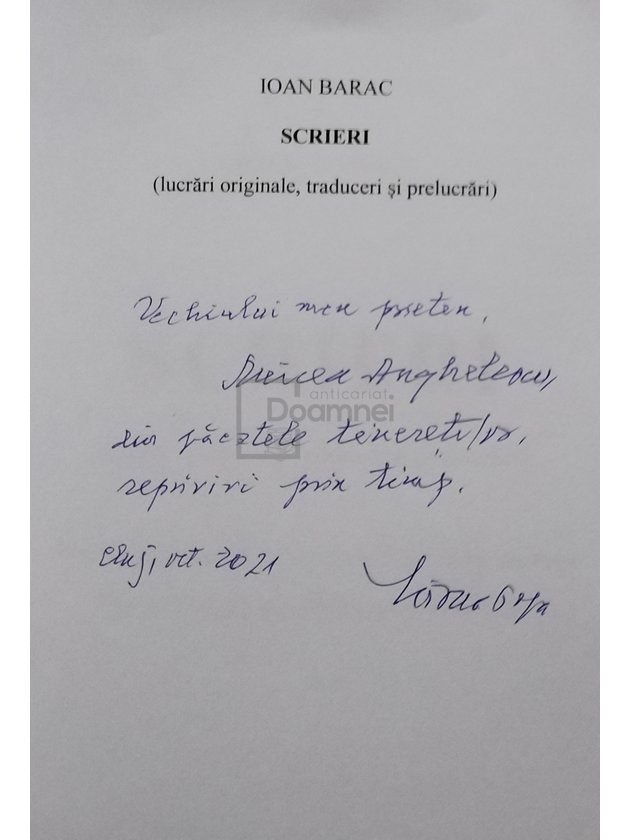 IOAN BARAC
SCRIERI
(lucrări originale, traduceri și prelucrări)
Vechiului meu prieten,
Mircea Anghelescu,
anticariat
Doamnei
din păcatele tinereților,
repriviri prin timp.
Cluj, oct. 2021